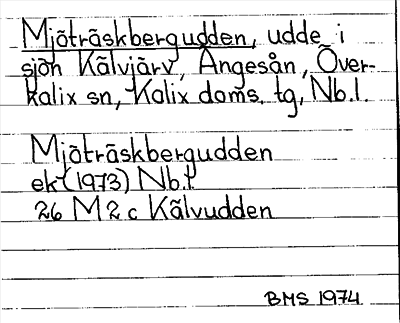 Mjöträskbergudden, udde i
sjön Kälvjärv, Ängesån, Över-
kalix sn, Kalix doms. tg, Nb.l.
Mjöträskbergudden
ek (1973) Nb.l
26 M 2 c Kälvudden
BMS 1974